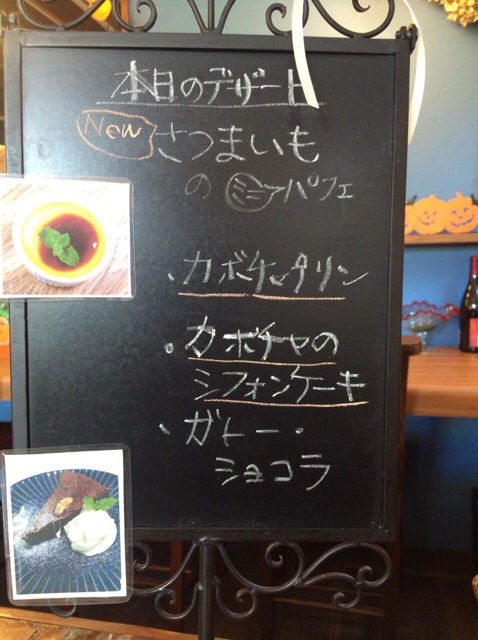 本日のデザート
New さつまいも
の ミニパフェ
・カボチャプリン
・カボチャの
シフォンケーキ
・ガトー・
ショコラ